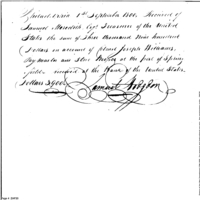 Philadelphia 1st September 1800. Received of
Samuel Meredith Esqr Treasurer of the United
States the sum of three thousand Nine hundred
Dollars on account of Joseph Williams,
Pay master and Store at the post of Spring
field, on the of the United States.
Dollars 3900
Samuel Hodgdon